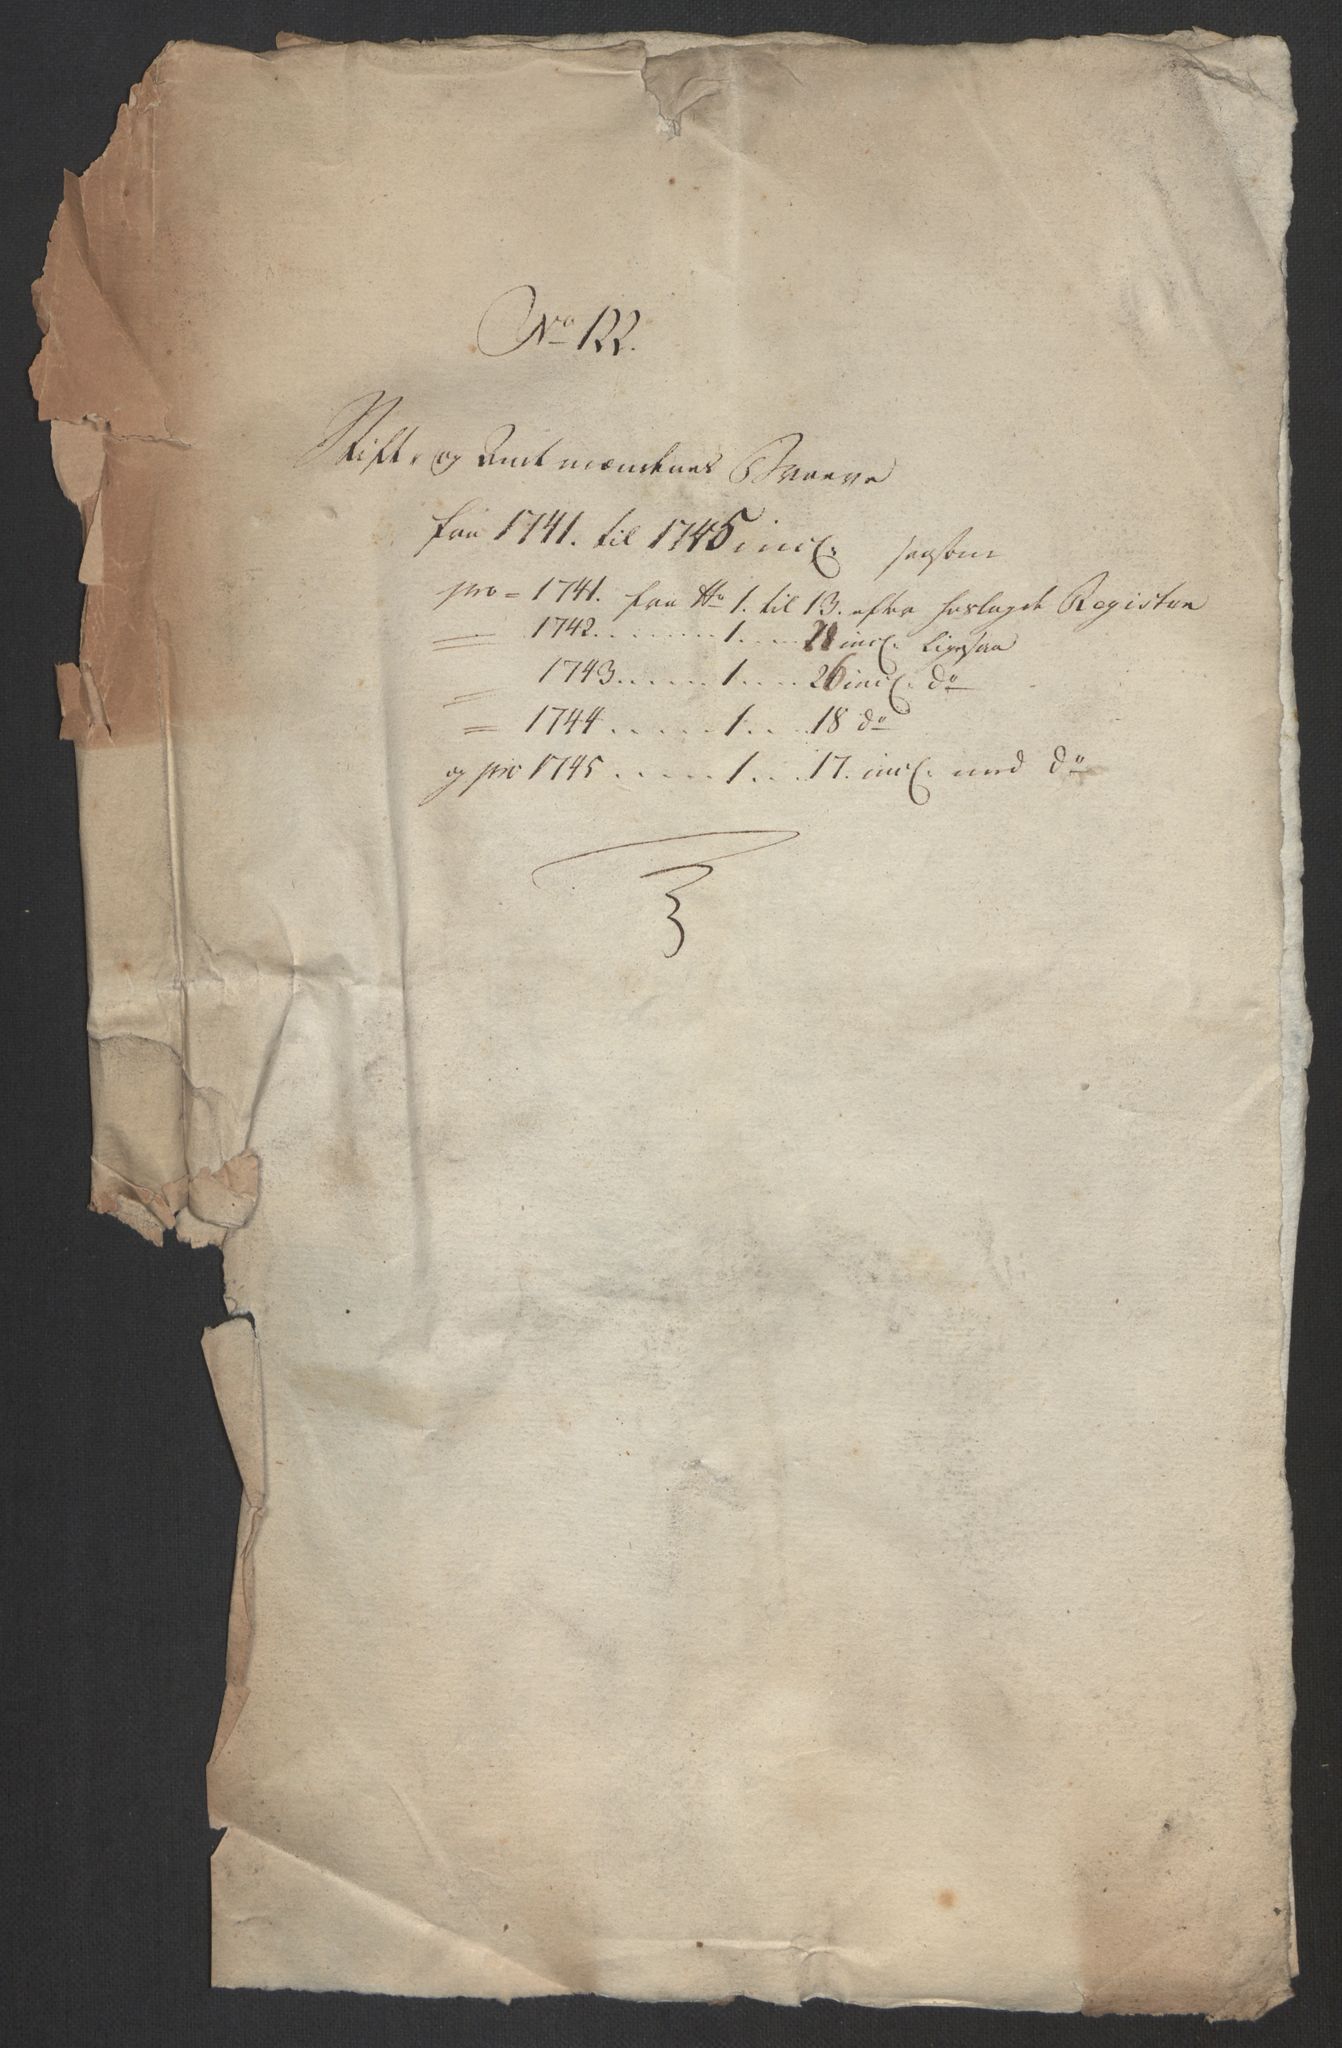 No 122.
Stift- og Amtmændenes Breve
fra 1741. til 1745 incl. saasom
pro = 1741. fra No 1. til 13. efter hoslagde Registere
= 1742. . . . . . . 1. . . . incl. Ligesaa
= 1743. . . . . . 1. . . . 26 incl. do
= 1744 . . . . . . 1. . . . 18 do
og pro 1745 . . . . . 1. . . 17. incl. med do